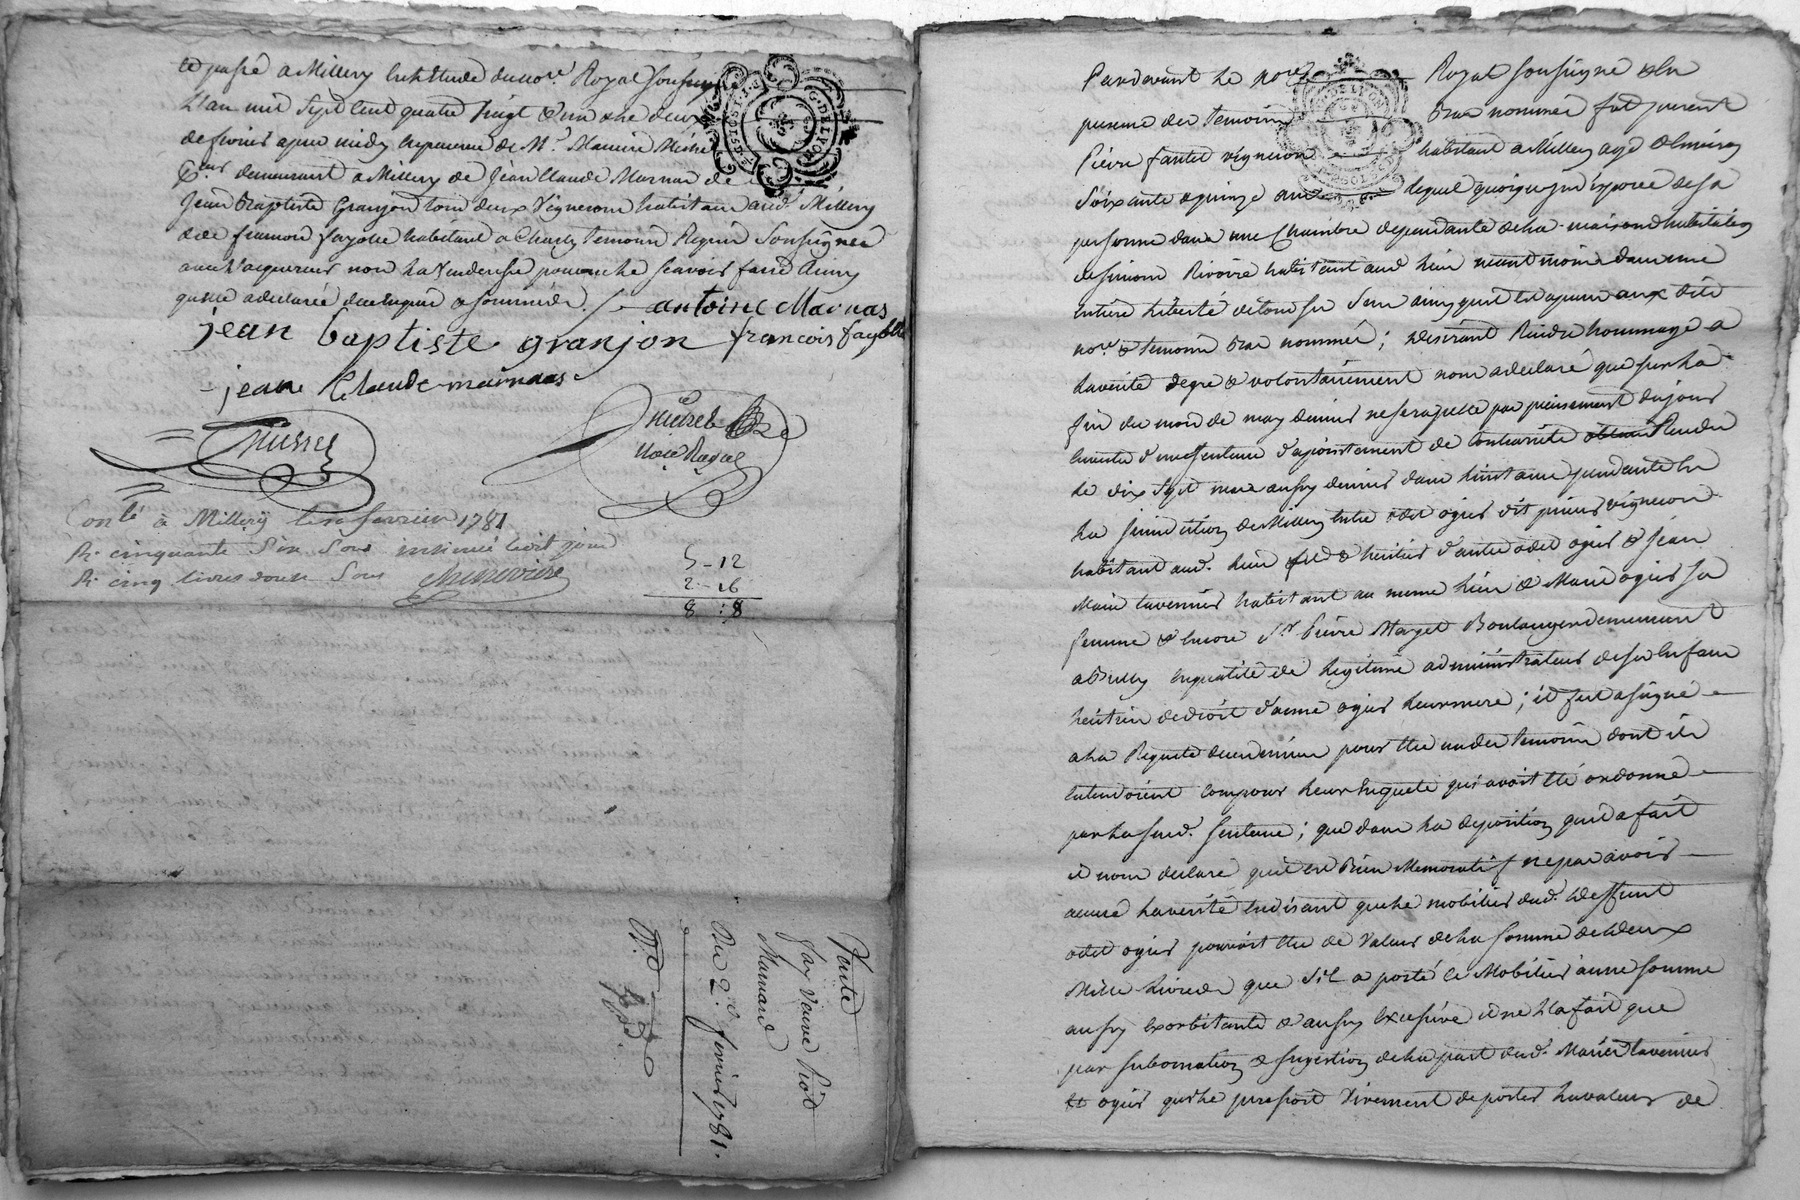 et passé a Millery En l'etude du no.re Royal soussigné
L'an mil sept cent quatre vingt & un & le deux
de fevrier apres midy En presence de M.r Maurice
demeurant a Millery de Jean Claude Marnas de
Jean Baptiste Granjon tous deux Vignerons habitans aud. Millery
& de francois fayolle habitant a Charly temoins Requis soussignés
avec l'acquereur non la Venderesse pour ne le scavoir faire ainsy
qu'elle a declaré de ce Enquise & sommée ./.
antoine Marnas
jean baptiste granjon francois fayolle
jean Claude marnas
Con.lé à Millery le fevrier 1781
R. cinquante six sous insinué led.t jour
R. cinq livres douze sous
5-12
2-16
8:8
Vente
Marnard
Du 2.e fevrier 1781.
G. DE LYON
Pardevant Le no.re Royal soussigné & En
presence des temoins Bas nommés fut present
Pierre vigneron habitant a Millery agé d'Environ
soixante & quinze ans lequel quoique indisposé de sa
personne dans une Chambre dependante de la maison d'habitation
de simon Rivoire habitant aud. lieu neantmoins dans une
Entiere liberté de tous ses sens ainsy qu'il est apparu aux dits
no.re & temoins Bas nommés ; desirant Rendre hommage a
la verité de gré & volontairement nous a declaré que sur la
fin du mois de may dernier ne se rapelle pas precisement du jour
En vertu d'une sentence d'apointement de Contrarieté Rendu
le dix sept mars aussy dernier dans l'instance pendante En
la jurisdiction de Millery Entre odet ogier dit vigneron
habitant aud. lieu fils & heritier d'autre odet ogier & jean
Marie tavernier habitant au meme lieu & Marie ogier sa
femme & Encore S.r Pierre Marget Boulanger demeurant
a En qualité de legitime administrateur de ses Enfans
heritiers de droit d'anne ogier leur mere ; il fut assigné
a la Requete de ce dernier pour Etre un des temoins dont ils
Entendoient Composer leur Enquete qui avoit Eté ordonné
par la sud. sentence ; que dans la deposition qu'il a fait
il nous declare qu'il est Bien Memoratif ne pas avoir
accusé la verité En disant que le mobilier dud. deffunt
odet ogier pouvoit Etre de Valeur de la somme de deux
Mille Livres & que s'il a porté ce Mobilier a une somme
aussy exorbitante & aussy Excessive il ne l'a fait que
par subornation & sugestion de la part dud. Marie tavernier
& ogier qui le pressoit Vivement de porter la valeur de